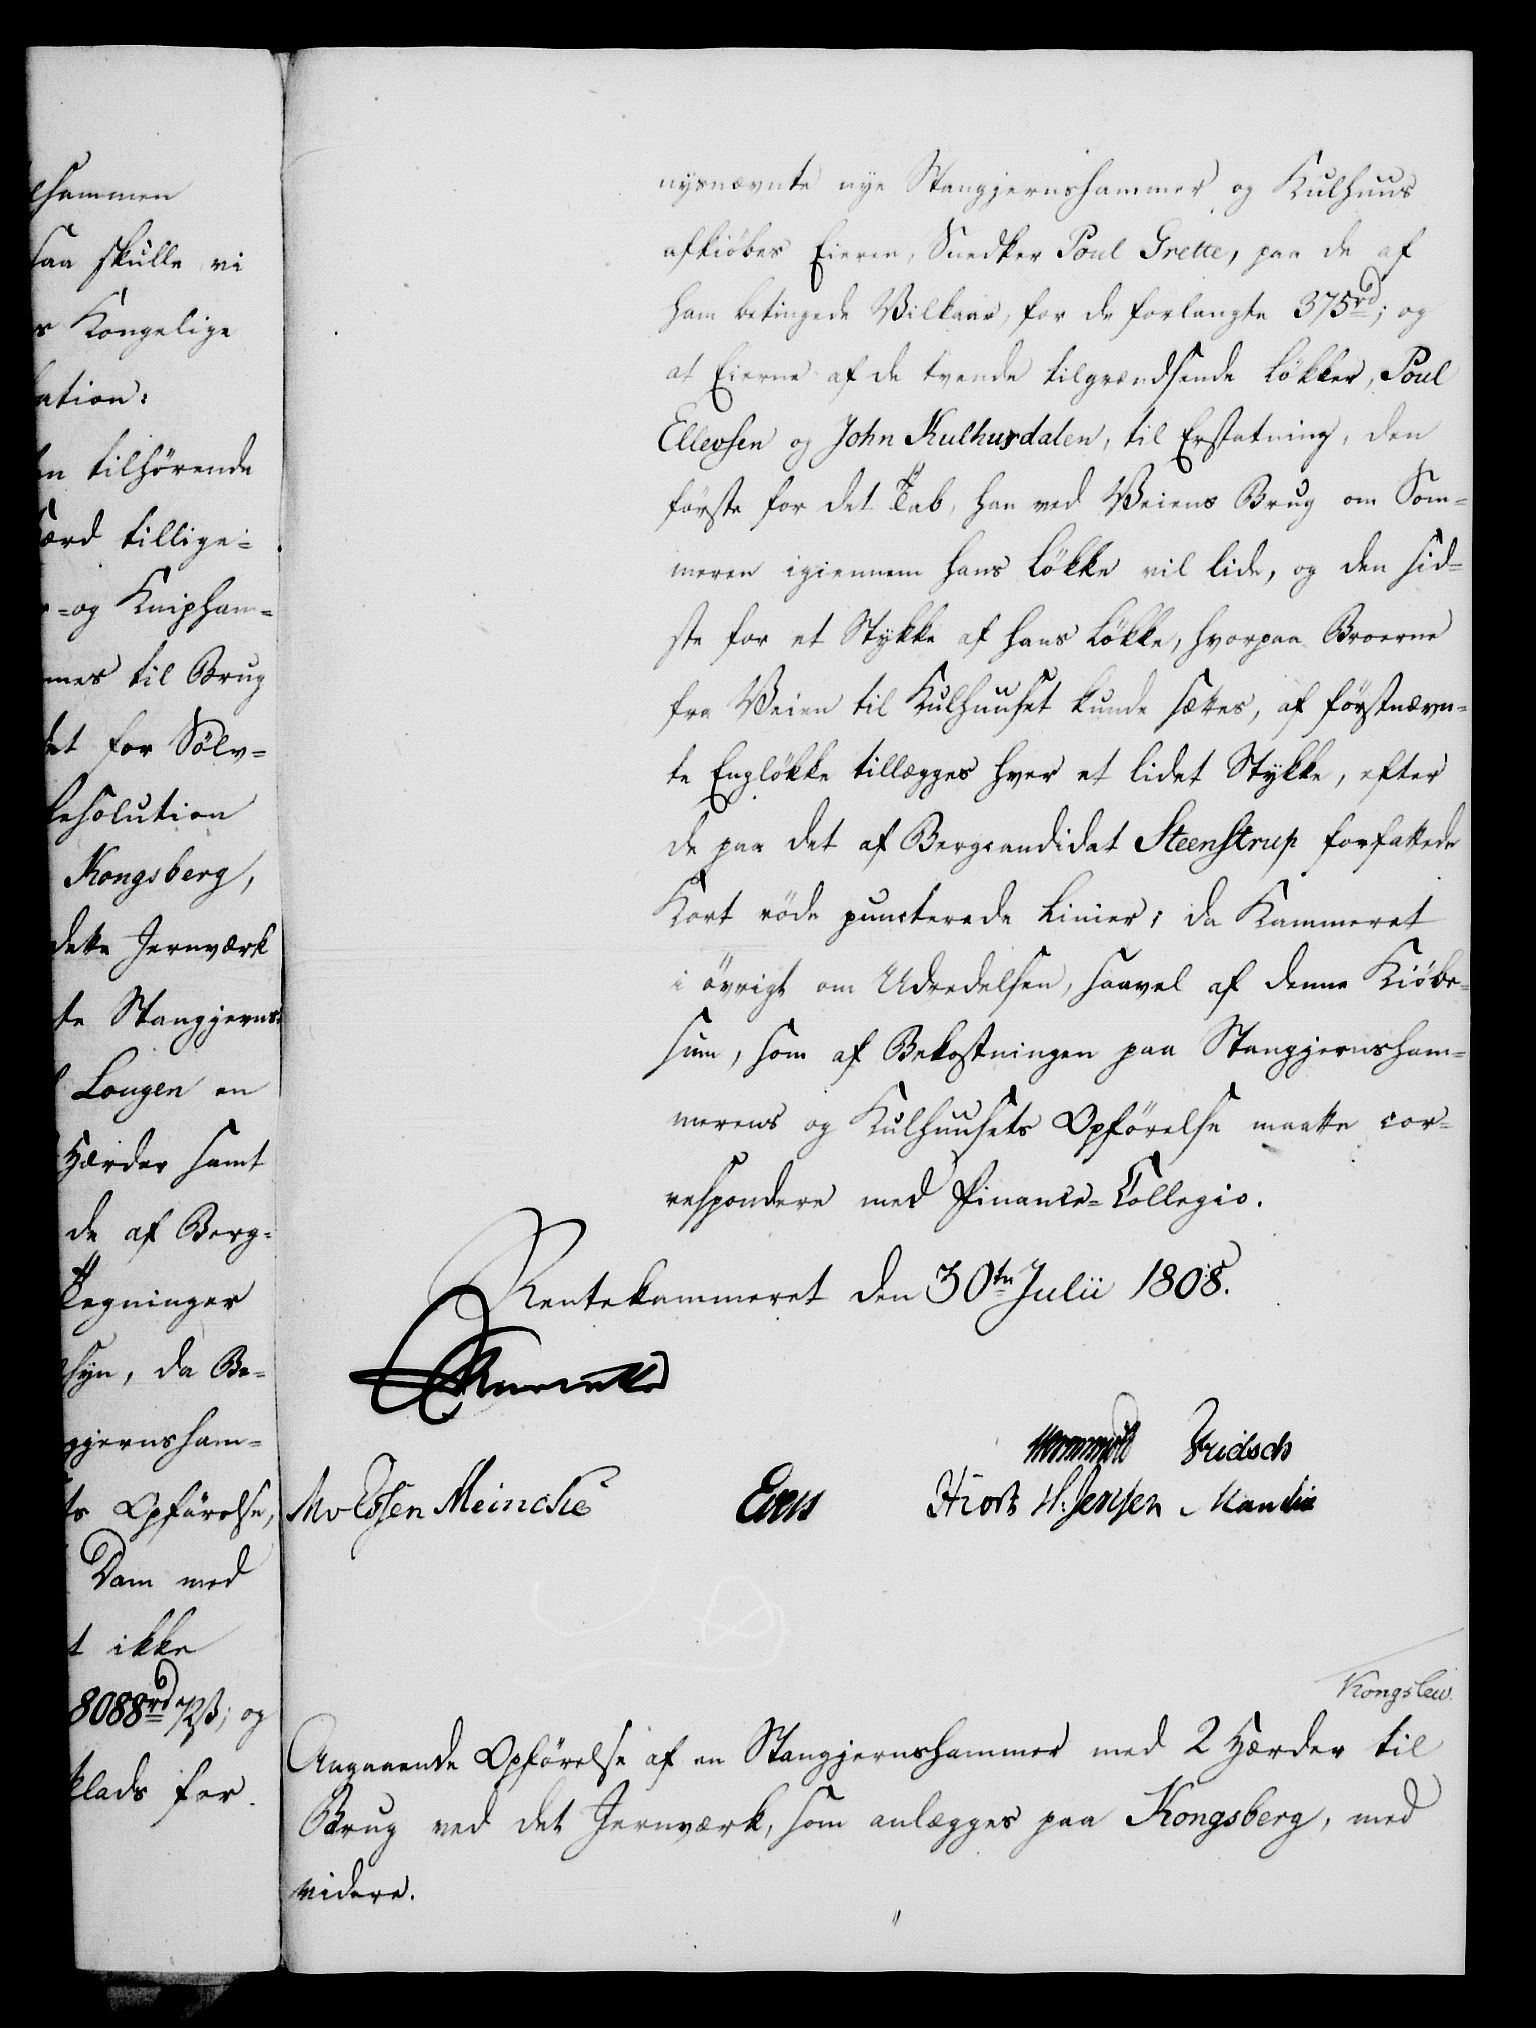 lhammen
saa skulle vi
s Kongelige
ation:
en tilhörende
ærd tillige-
r- og Kniipham-
mes til Brug
det for Sölv-
Resolution
Kongsberg,
dette Jernværk
te Stangjerns-
Lougen en
Hærder samt
de af Berg-
Tegninger
syn, da Be-
gjernsham-
ts Opförelse,
Dam med
t ikke
8088rd 72ß; og
klads for
nysnævnte nye Stangjernshammer og Kulhuus
afkiöbes Eieren, Snedker Poul Grette, paa de af
ham betingede Vilkaar, for de forlangte 375rd; og
at Eierne af de tvende tilgrændsende Lökker, Poul
Ellevsen og John Kulhusdalen, til Erstatning, den
förste for det Tab, han ved Veiens Brug om Som-
meren igiennem hans Lökke vil lide, og den sid-
ste for et Stykke af hans Lökke, hvorpaa Broerne
fra Veien til Kulhuuset kunde sættes, af förstnævn-
te Englökke tillægges hver et lidet Stykke, efter
de paa det af Bergcandidat Steenstrup forfattede
Kort röde puncterede Linier; da Kammeret
i övrigt om Udredelsen, saavel af denne Kiöbe-
sum, som af Bekostningen paa Stangjernsham-
merens og Kulhuusets Opförelse maatte cor-
respondere med Finance-Collegio.
Rentekammeret den 30te Julii 1808.
Wormskiold Fridsch
MvEssen Meincke Evers Hiort H: Jensen Manthe
Kongslew.
Angaaende Opförelse af en Stangjernshammer med 2 Hærder til
Brug ved det Jernværk, som anlægges paa Kongsberg, med
videre.